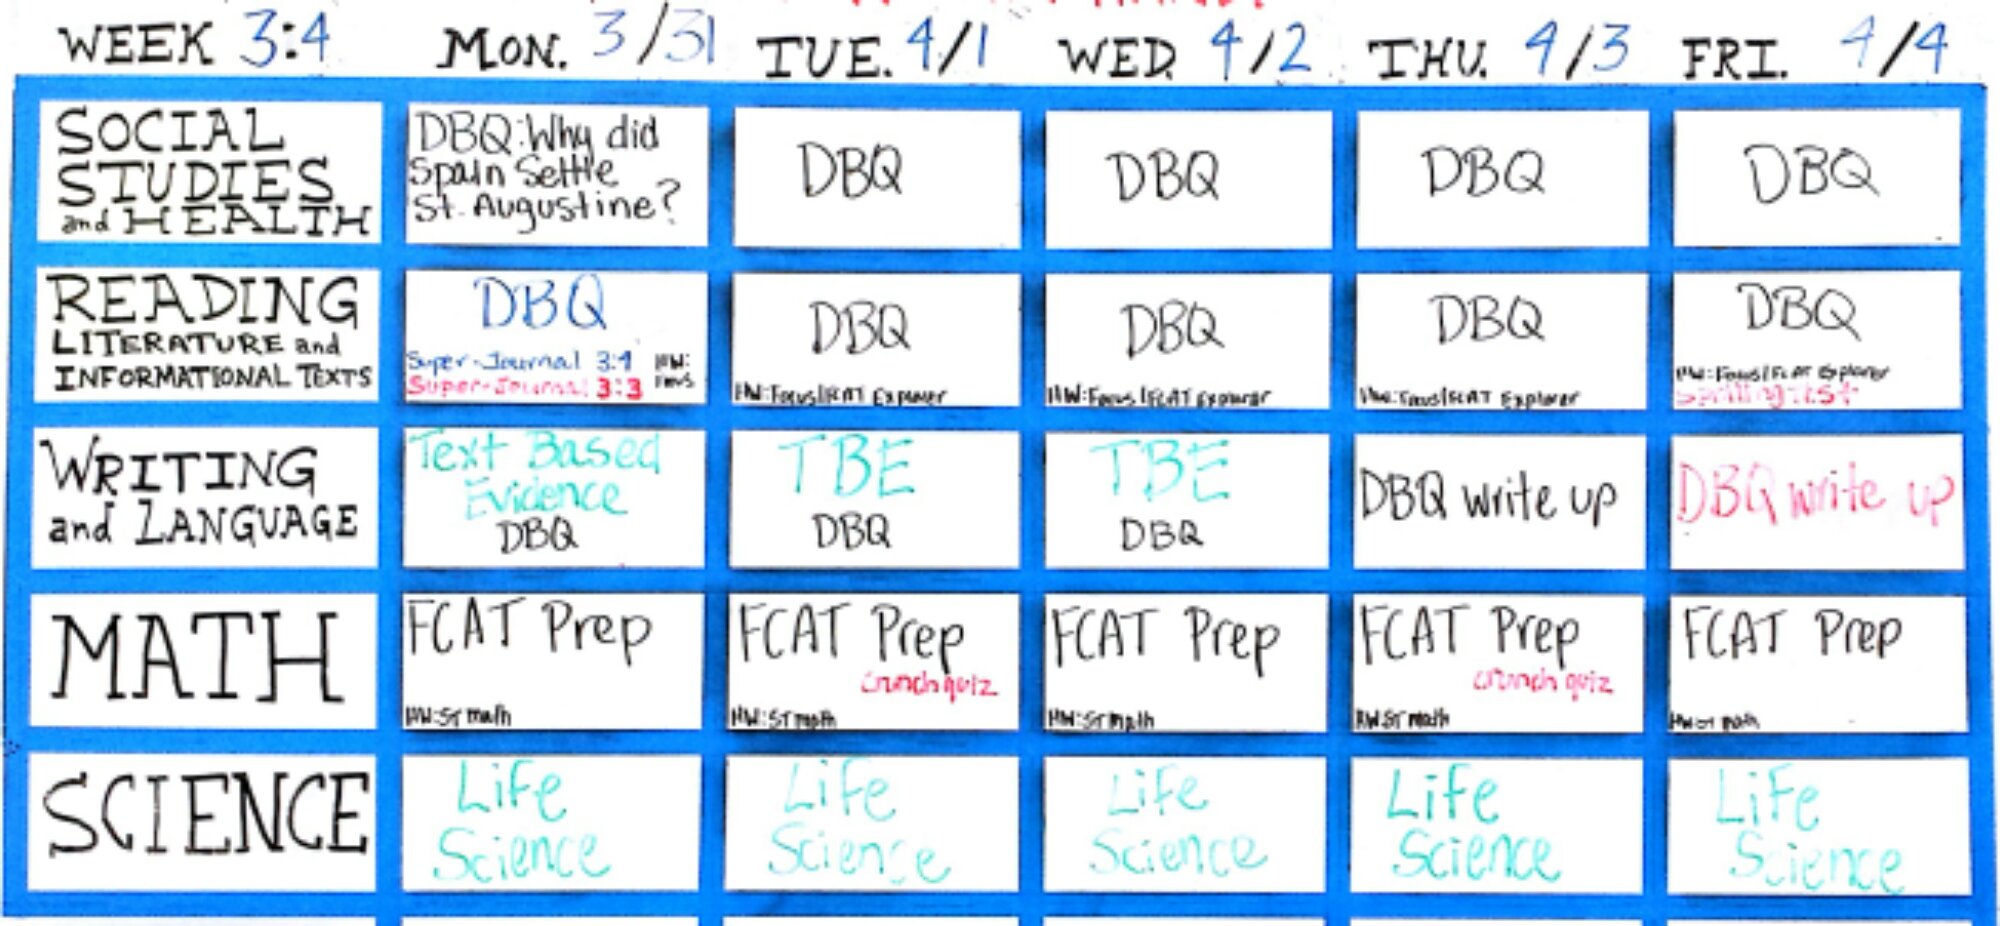 WEEK 3:4 MON. 3/31 TUE. 4/1 WED. 4/2 THU. 4/3 FRI. 4/4
SOCIAL
STUDIES
and HEALTH
DBQ: Why did
Spain Settle
St. Augustine?
DBQ
DBQ
DBQ
DBQ
READING
LITERATURE and
INFORMATIONAL TEXTS
DBQ
Super-Journal 3:4 HW:
Super-Journal 3:3
DBQ
HW: Focus/FCAT Explorer
DBQ
HW: Focus/FCAT Explorer
DBQ
HW: Focus/FCAT Explorer
DBQ
HW: Focus/FCAT Explorer
Spelling test
WRITING
and LANGUAGE
Text Based
Evidence
DBQ
TBE
DBQ
TBE
DBQ
DBQ write up
DBQ write up
MATH
FCAT Prep
HW: ST math
FCAT Prep
crunch quiz
HW: ST math
FCAT Prep
HW: ST math
FCAT Prep
crunch quiz
HW ST math
FCAT Prep
HW ST math
SCIENCE
Life
Science
Life
Science
Life
Science
Life
Science
Life
Science